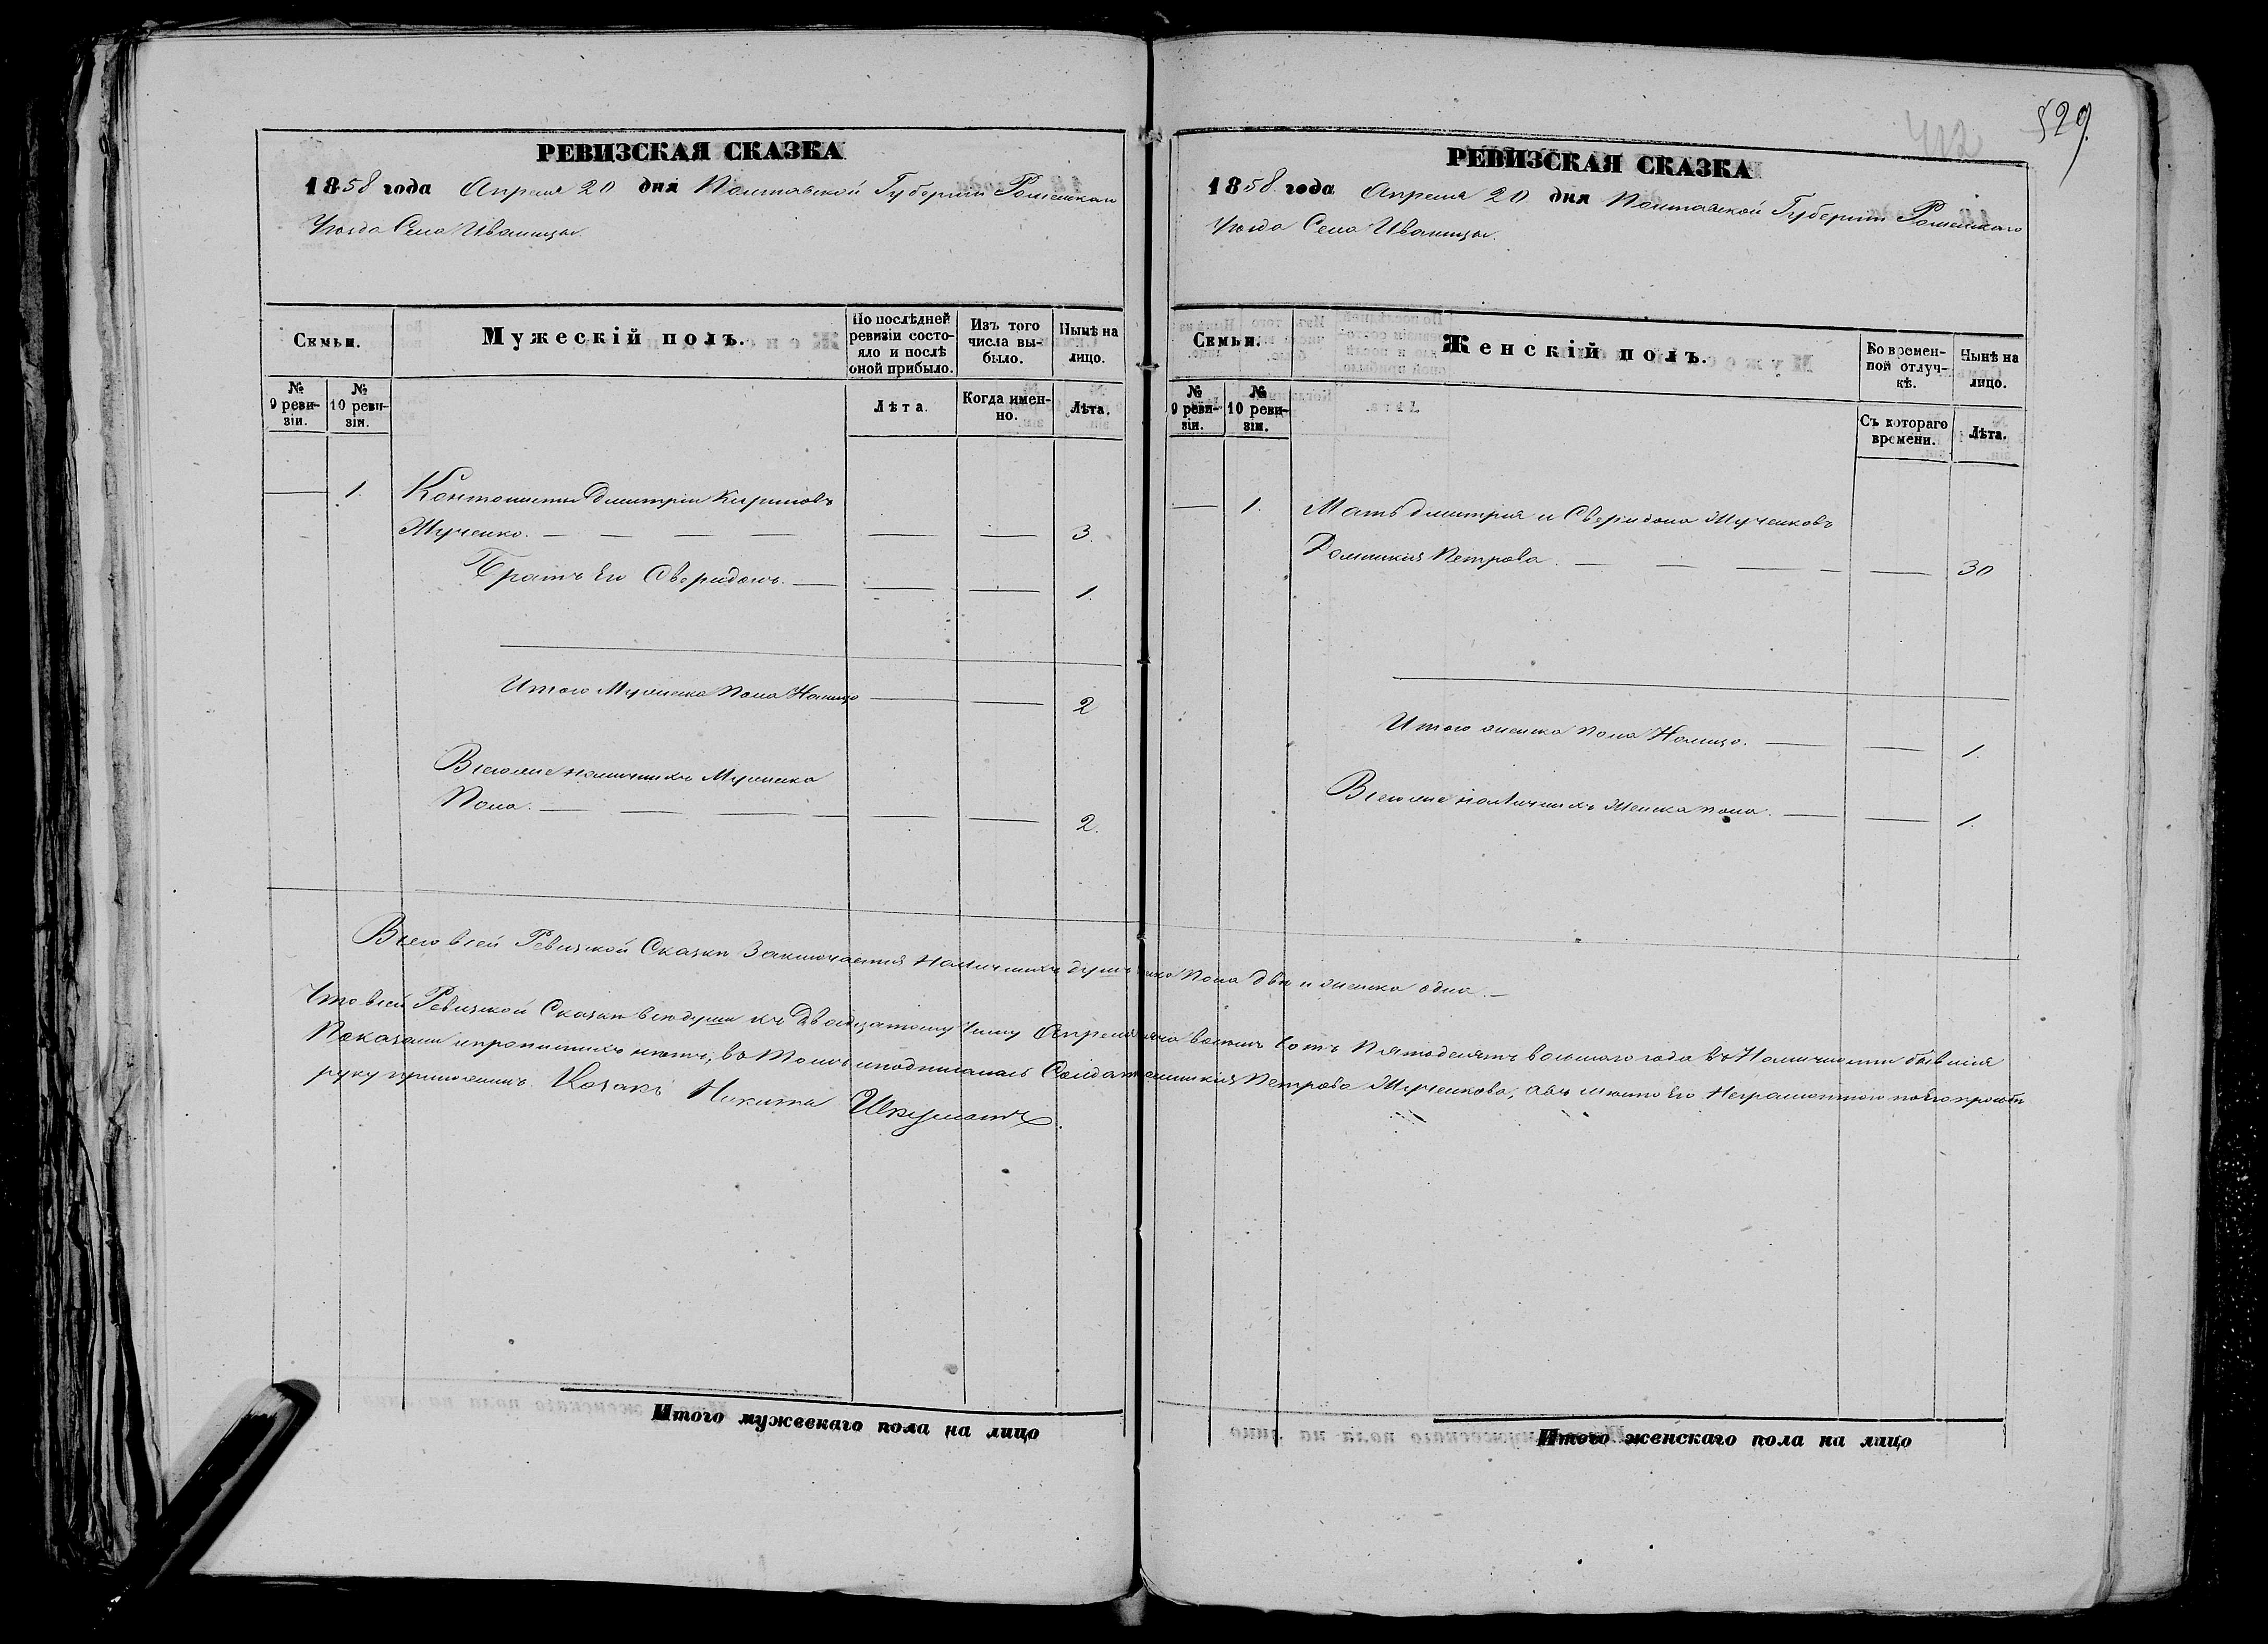 529
412
РЕВИЗСКАЯ СКАЗКА
1858 года Апреля 20 дня Полтавской Губерніи Роменскаго
Уѣзда Села Иваницы.
Семьи.
Мужескій полъ.
По послѣдней ревизіи состояло и послѣ оной прибыло.
Изъ того числа выбыло.
Нынѣ на лицо.
№ 9 ревизіи.
№ 10 ревизіи.
Лѣта.
Когда именно.
Лѣта.
1. Кантонисты Дмитрій Кириловъ
Мученко. 3.
Братъ Его Свиридонъ. 1.
Итого Мужеска Пола Налицо 2
Всего же наличныхъ Мужеска
Пола. 2.
РЕВИЗСКАЯ СКАЗКА
1858 года Апреля 20 дня Полтавской Губерніи Роменскаго
Уѣзда Села Иваницы.
Семьи.
Женскій полъ.
Во временной отлучкѣ.
Нынѣ на лицо.
№ 9 ревизіи.
№ 10 ревизіи.
Съ котораго времени.
Лѣта.
1. Мать Дмитрия и Свиридона Мученковъ
Домникия Петрова. 30
Итого женска пола Налицо. 1.
Всего же наличныхъ Женска пола. 1.
Всего всей Ревизкой Сказки Заключается Наличныхъ душъ пола две и женска одна.
Что всей Ревизкой Сказки все души къ Двадцатому Числу Апреля восемь Сотъ Пятдесятъ восьмого года въ Наличности бывшия
Показаны и прописныхъ нетъ, въ Томъ и подписалась Солдат Домникия Петрова Мученкова, а въ место Его Неграмотного по Его прозбѣ
руку приложилъ Козакъ Никита
Итого мужескаго пола на лицо
Итого женскаго пола на лицо